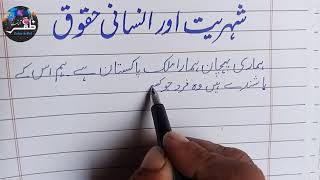 شہریت اور انسانی حقوق
ہماری پہچان ہمارا ملک پاکستان ہے ہم اس کے
باشندے ہیں وہ فرد جو کسی